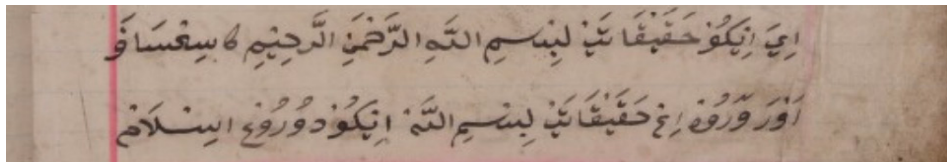 اِيَ اِيْكُوْ حَقَيْقَاتَيْ لِبِسْمِ اللّٰهِ الرَّحْمٰنِ الرَّحِيْمِ كَاسِڠْسَافَ
اَوْرَ وَرُوْهْ اِڠْ حَقَيْقَاتَيْ لِبِسْمِ اللّٰهْ اِيْكُوْ دُوْرُوْڠْ اِسْلَامْ